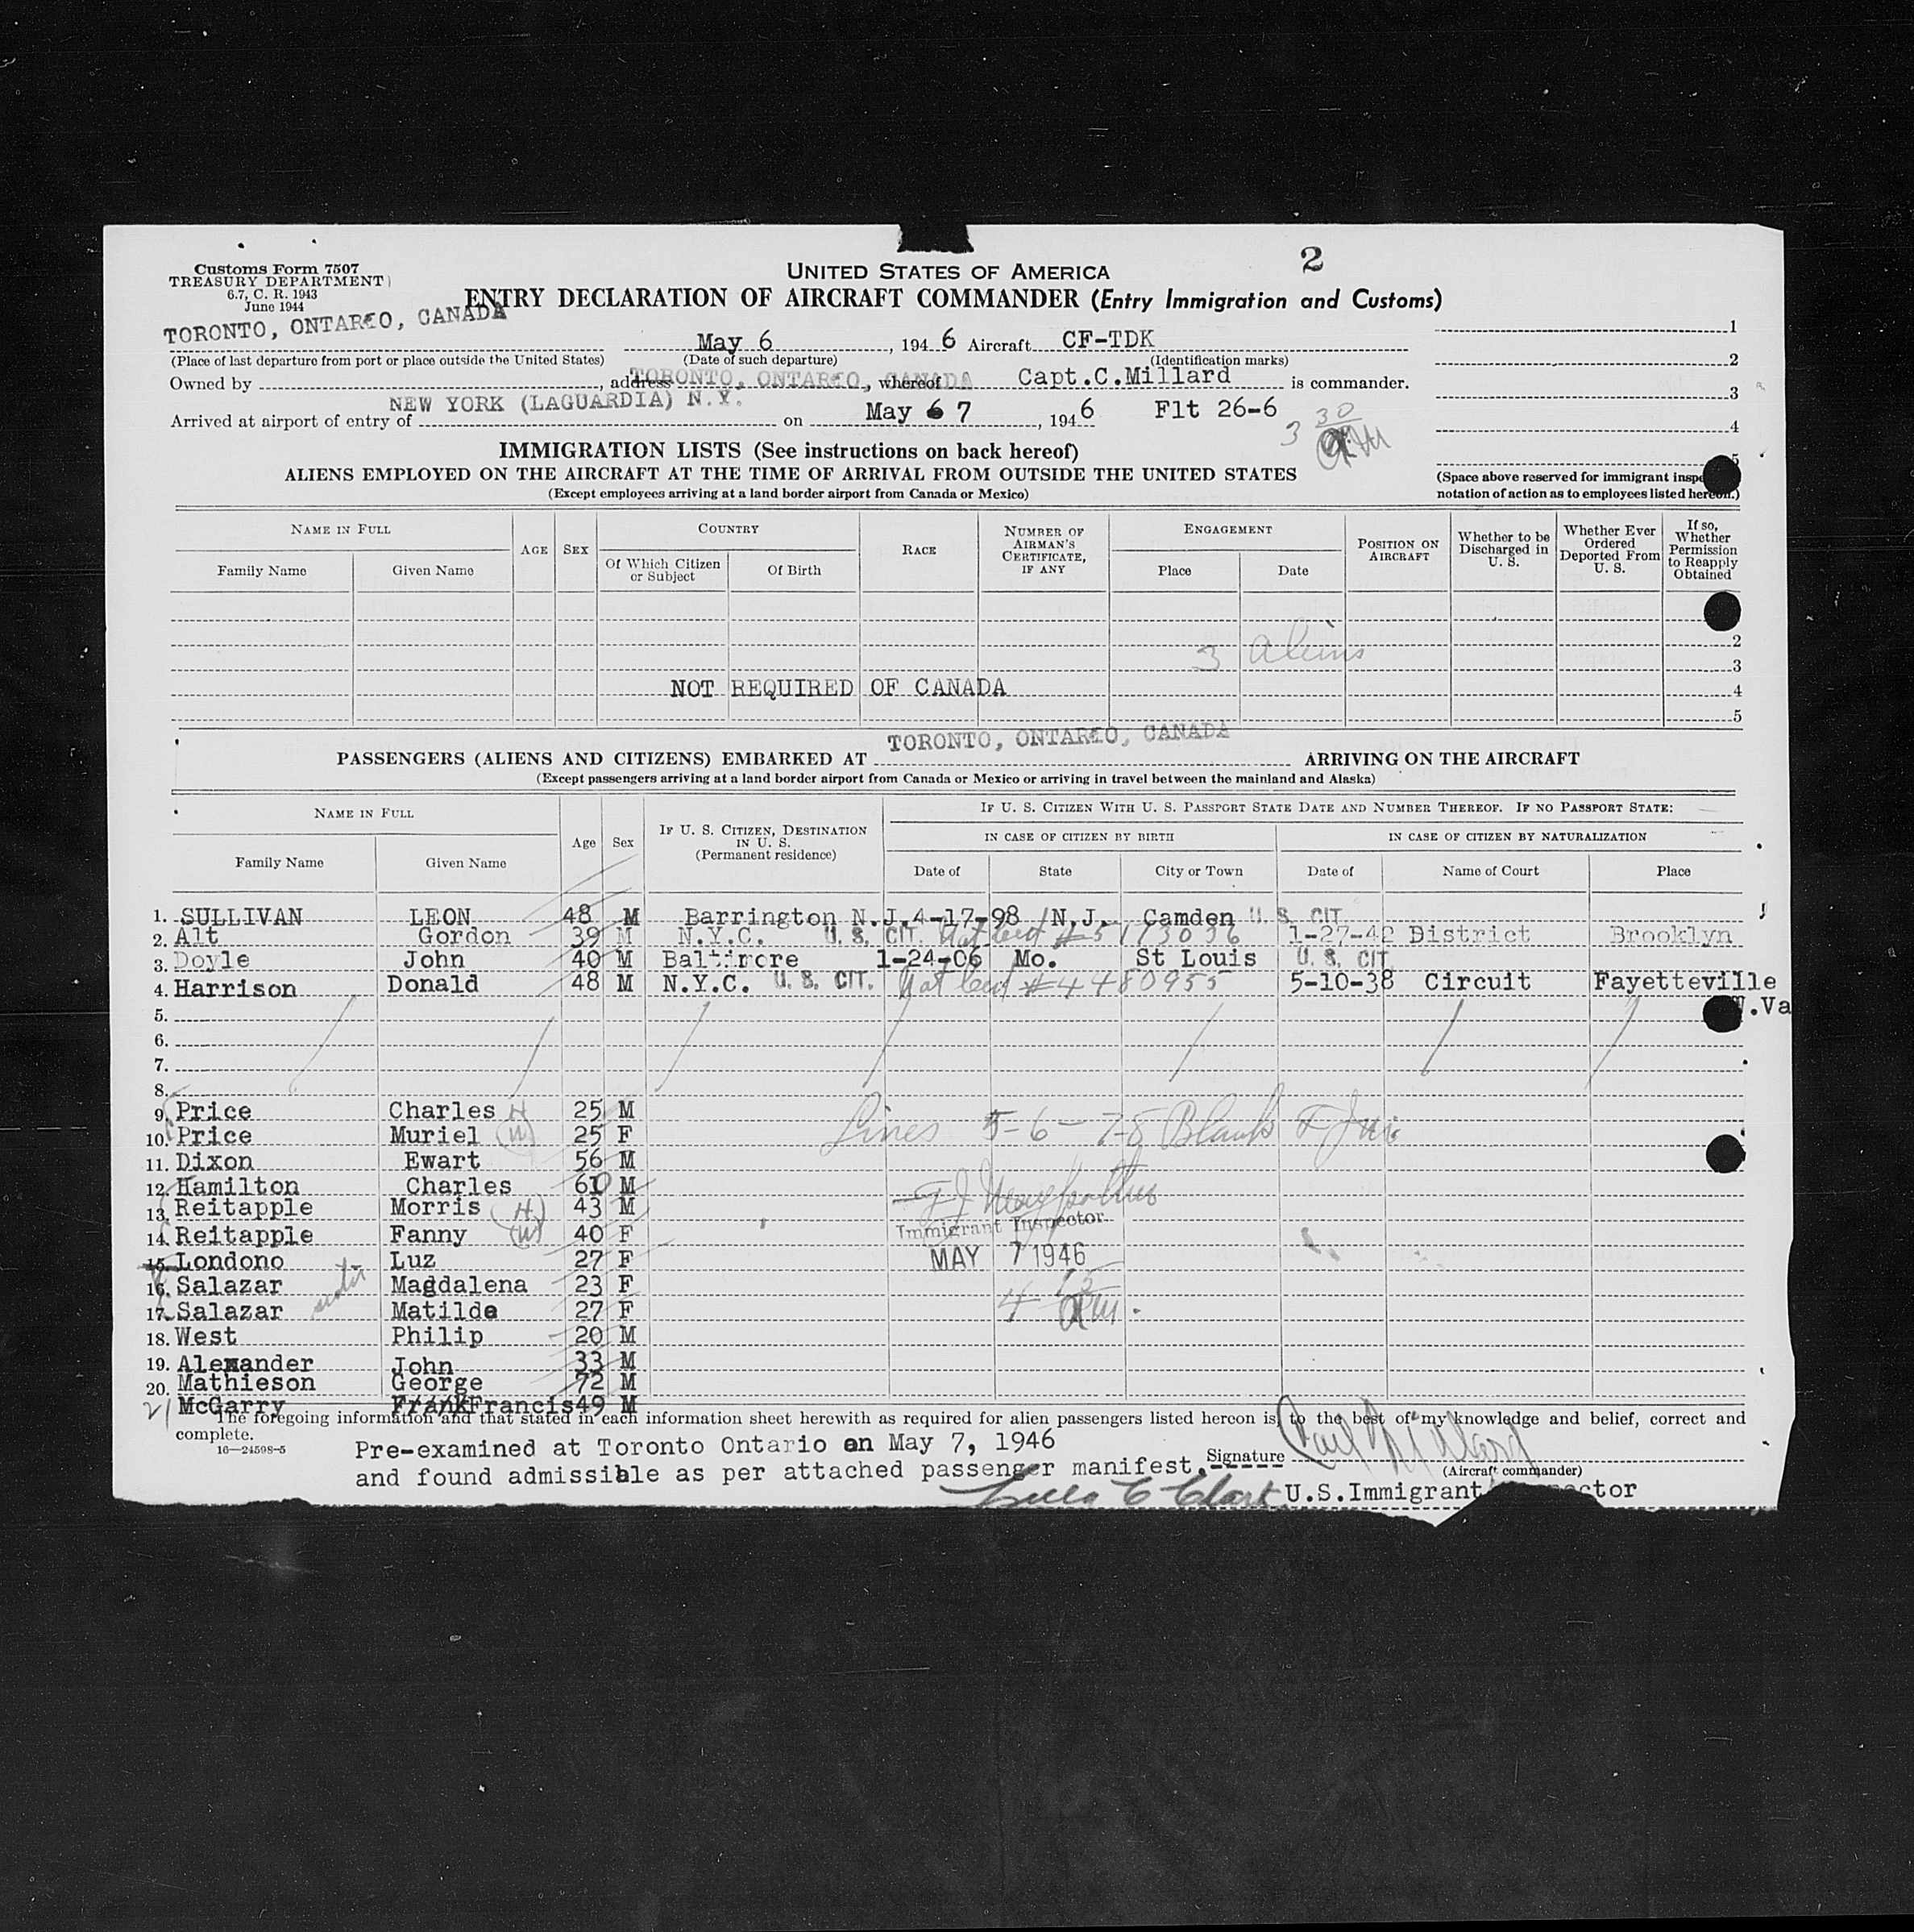 2
Customs Form 7507
TREASURY DEPARTMENT
6.7, C. R. 1943
June 1944
UNITED STATES OF AMERICA
ENTRY DECLARATION OF AIRCRAFT COMMANDER (Entry Immigration and Customs)
TORONTO, ONTARIO, CANADA May 6, 194 6 Aircraft CF-TDK 1
(Place of last departure from port or place outside the United States) (Date of such departure) (Identification marks) 2
Owned by , address TORONTO, ONTARIO, CANADA , whereof Capt.C.Millard is commander. 3
Arrived at airport of entry of NEW YORK (LAGUARDIA) N.Y. on May 6 7, 194 6 Flt 26-6 4
3 30 AM 5
IMMIGRATION LISTS (See instructions on back hereof)
ALIENS EMPLOYED ON THE AIRCRAFT AT THE TIME OF ARRIVAL FROM OUTSIDE THE UNITED STATES
(Except employees arriving at a land border airport from Canada or Mexico)
(Space above reserved for immigrant
notation of action as to employees listed hereon.)
NAME IN FULL
Family Name Given Name
AGE SEX
COUNTRY
Of Which Citizen or Subject Of Birth
RACE
NUMBER OF AIRMAN'S CERTIFICATE, IF ANY
ENGAGEMENT
Place Date
POSITION ON AIRCRAFT
Whether to be Discharged in U. S.
Whether Ever Ordered Deported From U. S.
If so, Whether Permission to Reapply Obtained
2
3
3
NOT REQUIRED OF CANADA 4
5
TORONTO, ONTARIO, CANADA
PASSENGERS (ALIENS AND CITIZENS) EMBARKED AT ARRIVING ON THE AIRCRAFT
(Except passengers arriving at a land border airport from Canada or Mexico or arriving in travel between the mainland and Alaska)
NAME IN FULL
Family Name Given Name
Age Sex
IF U. S. CITIZEN, DESTINATION IN U. S.
(Permanent residence)
IF U. S. CITIZEN WITH U. S. PASSPORT STATE DATE AND NUMBER THEREOF. IF NO PASSPORT STATE:
IN CASE OF CITIZEN BY BIRTH IN CASE OF CITIZEN BY NATURALIZATION
Date of State City or Town Date of Name of Court Place
1. SULLIVAN LEON 48 M Barrington N.J. 4-17-98 N.J. Camden U. S. CIT.
2. Alt Gordon 39 M N.Y.C. U. S. CIT. Nat Cert #5173036 1-27-42 District Brooklyn
3. Doyle John 40 M Baltimore 1-24-06 Mo. St Louis U. S. CIT.
4. Harrison Donald 48 M N.Y.C. U. S. CIT. Nat Cert #4480955 5-10-38 Circuit Fayetteville
5. .Va
6.
7.
8.
9. Price Charles H 25 M
10. Price Muriel (W) 25 F Lines 5-6-7-8 Blank
11. Dixon Ewart 56 M
12. Hamilton Charles 60 M
13. Reitapple Morris (H) 43 M
14. Reitapple Fanny (W) 40 F Immigrant Inspector
15. Londono Luz 27 F MAY 7 1946
16. Salazar Magdalena 23 F 4 15
17. Salazar Matilde 27 F AM
18. West Philip 20 M
19. Alexander John 33 M
20. Mathieson George 72 M
21 McGarry Frank Francis 49 M
The foregoing information and that stated in each information sheet herewith as required for alien passengers listed hereon is, to the best of my knowledge and belief, correct and
complete.
16—24598-5
Pre-examined at Toronto Ontario on May 7, 1946
Signature Carl Millard
and found admissible as per attached passenger manifest.
(Aircraft commander)
U.S.Immigrant